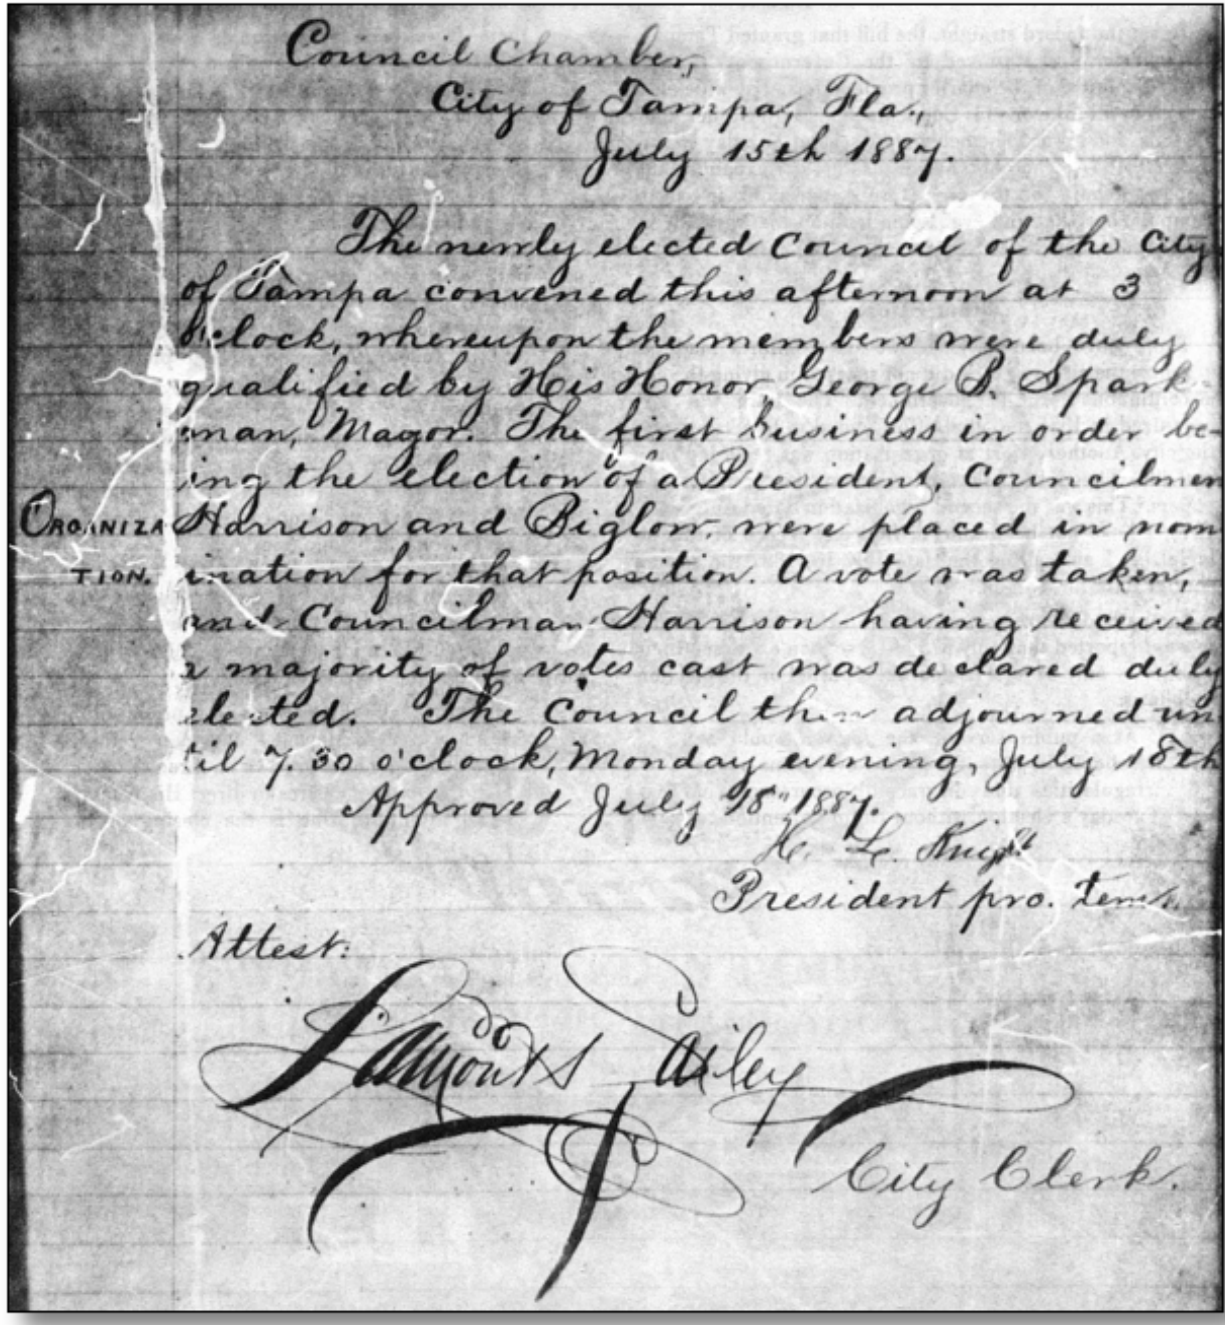 Council Chamber,
City of Tampa, Fla.,
July 15th 1887.
The newly elected Council of the City
of Tampa convened this afternoon at 3
o'clock, whereupon the members were duly
qualified by His Honor, George B. Spark-
man, Mayor. The first business in order be-
ing the election of a President, Councilmen
ORGANIZA Harrison and Biglow, were placed in nom
TION. ination for that position. A vote was taken,
and Councilman Harrison having received
a majority of votes cast was declared duly
elected. The Council then adjourned un
til 7.30 o'clock, Monday evening, July 18th
Approved July 18" 1887.
H. L. Knight
President pro. tem.
Attest:
Bailey
City Clerk.